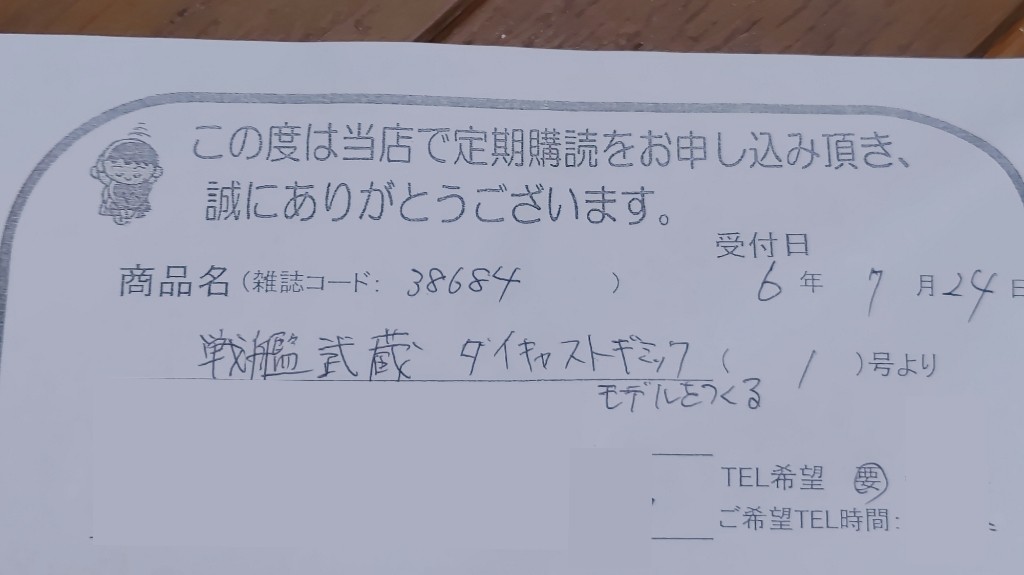 この度は当店で定期購読をお申し込み頂き、
誠にありがとうございます。
受付日
商品名(雑誌コード: 38684 ) 6年 7月24日
戦艦武蔵 ダイキャストギミック( 1 )号より
モデルをつくる
TEL希望 要
ご希望TEL時間: